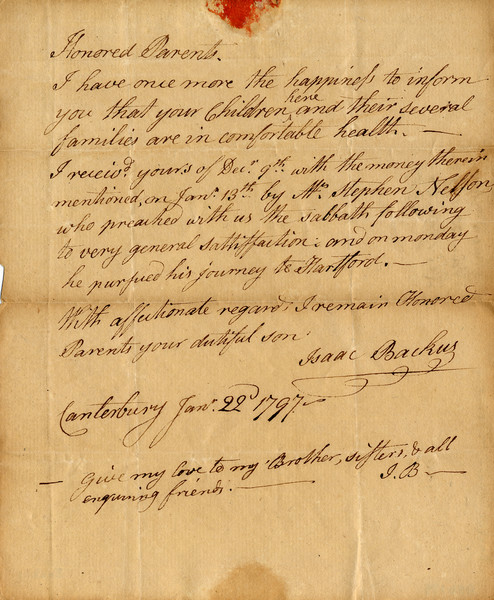 Honored Parents.
I have once more the happiness to inform
you that your Children here and their several
families are in comfortable health. —
I receivd yours of Decr. 9th. with the money therein
mentioned, on Janr. 13th. by Mr. Stephen Nelson,
who preached with us the sabbath following
to very general sattisfaction: and on monday
he pursued his journey to Hartford. —
With affectionate regards I remain Honored
Parents your dutiful son:
Isaac Backus
Canterbury Janr. 22d 1797 —
— Give my love to my Brother, sisters, & all
enquiring friends. —
I. B —